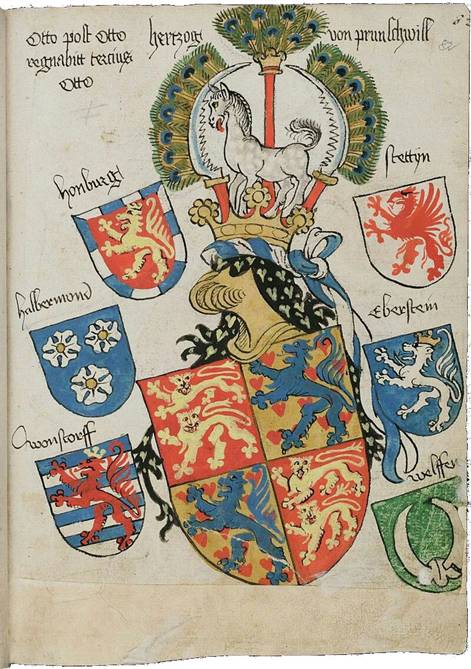 Otto post Otto
regnabit tercius
Otto
hertzog von prunschwill
82
honburg
stettyn
halbermond
Eberstein
Wonstorff
Welffen